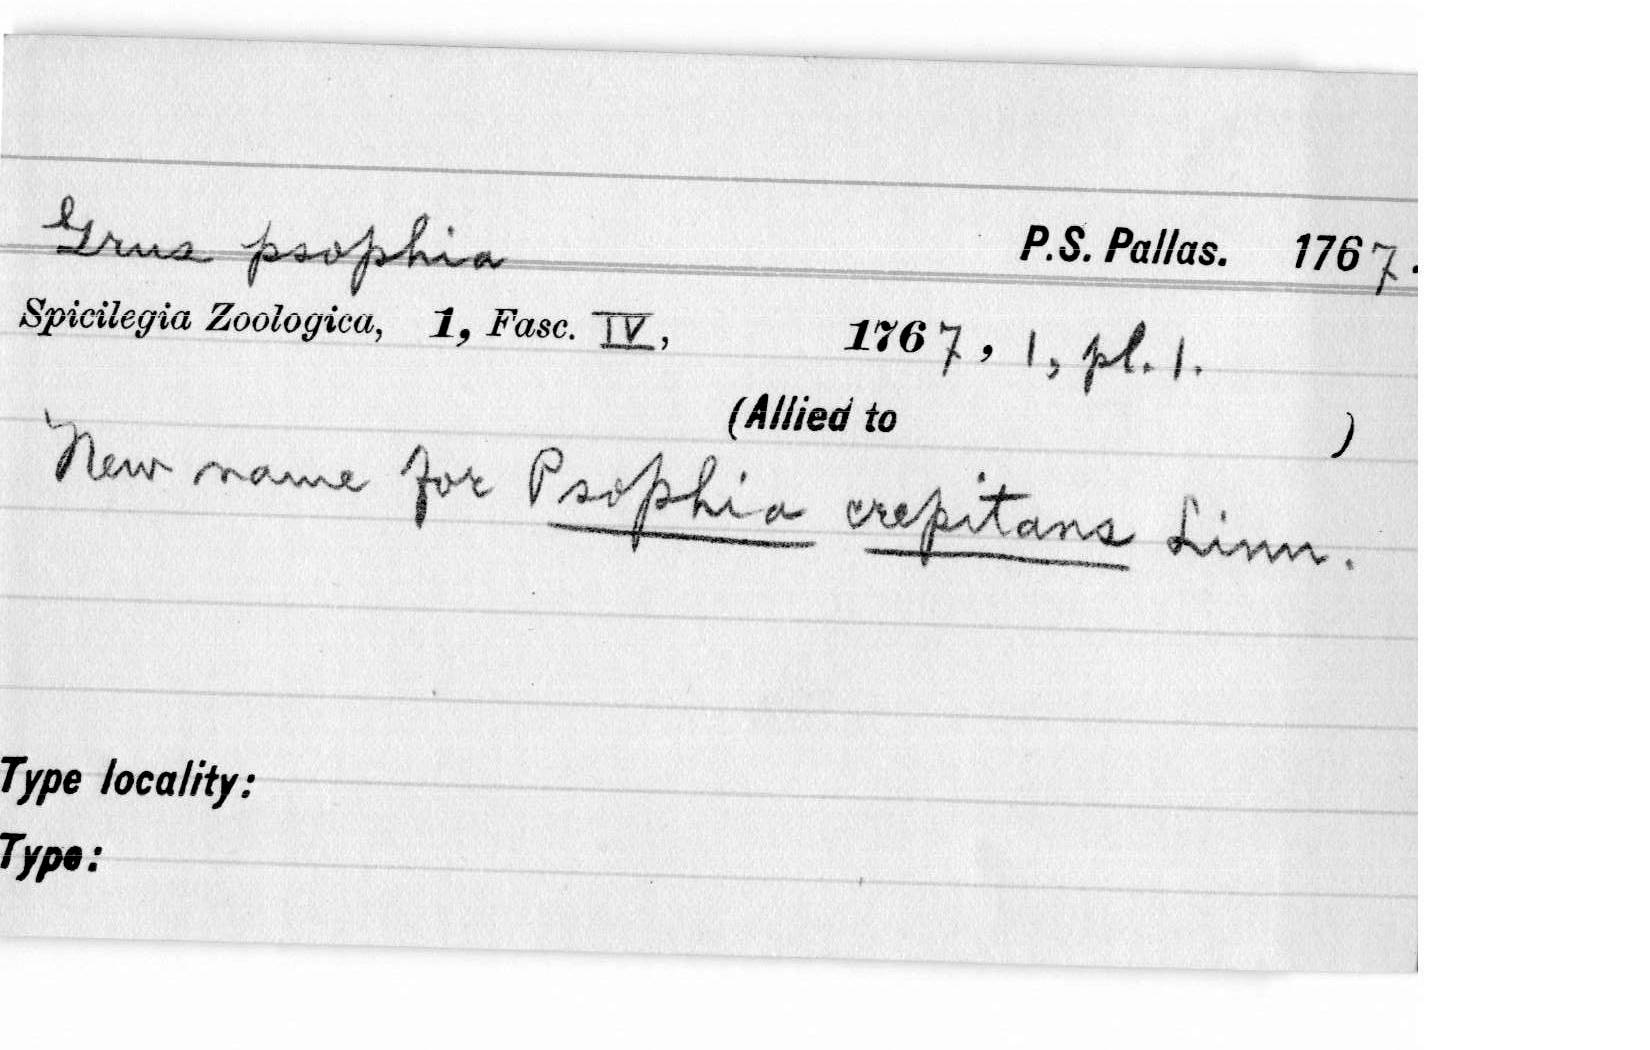 Grus psophia P.S. Pallas. 1767.
Spicilegia Zoologica, 1, Fasc. IV, 1767, 1, pl. 1.
(Allied to )
New name for Psophia crepitans Linn.
Type locality:
Type: